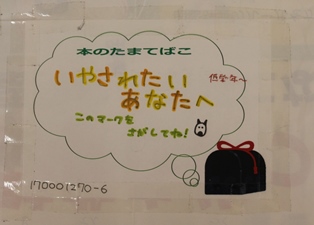 本のたまてばこ
いやされたい
低学年〜
あなたへ
このマークを
さがしてね!
170001270-6